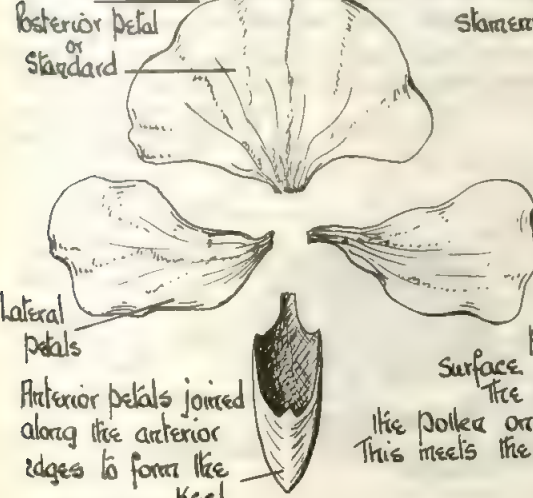 Posterior petal
or
Standard
Stamen
Lateral
petals
Anterior petals joined
along the anterior
edges to form the
Keel
Surface
The
the pollen on
This meets the